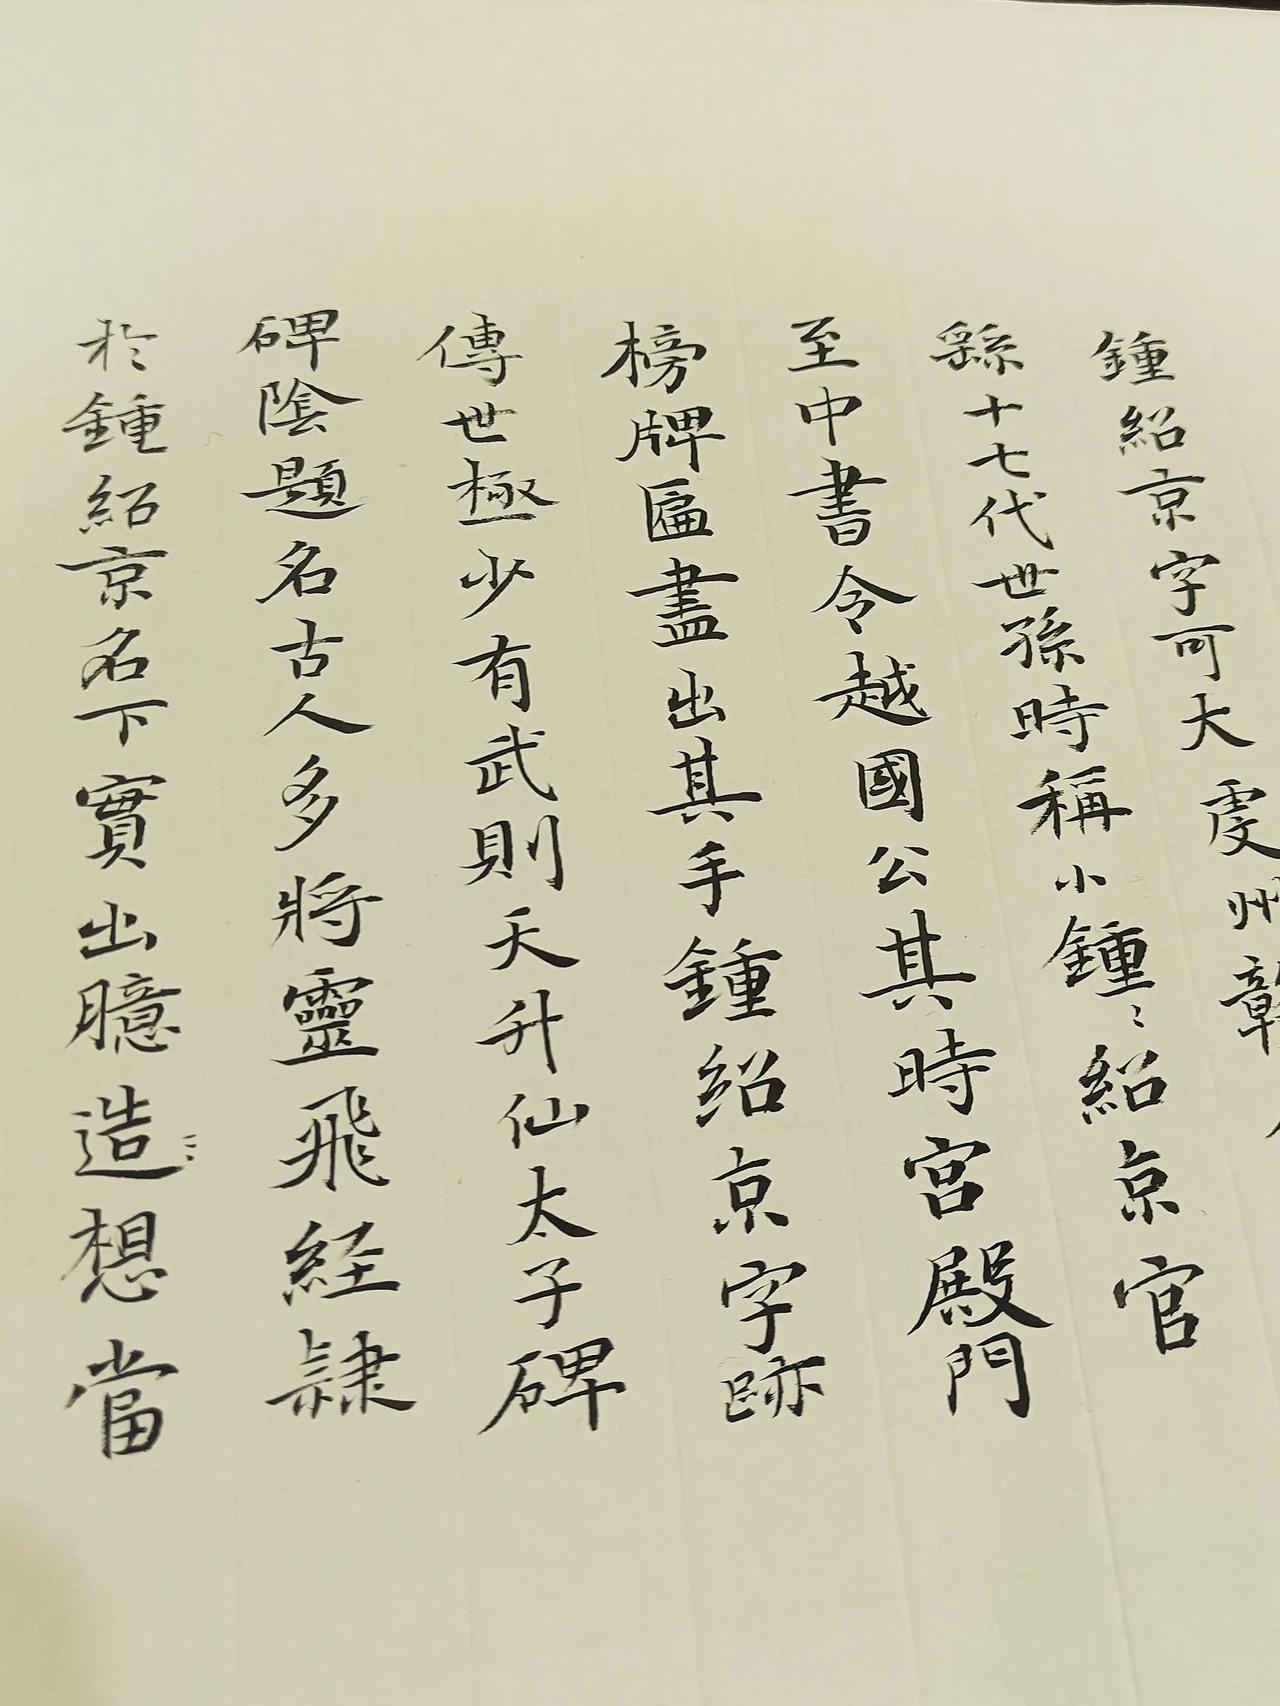 鍾紹京字可大虔州贛
繇十七代世孫時稱小鍾〻紹京官
至中書令越國公其時宮殿門
榜牌匾盡出其手鍾紹京字跡
傳世極少有武則天升仙太子碑
碑陰題名古人多將靈飛経隷
於鍾紹京名下實出臆造〻想當